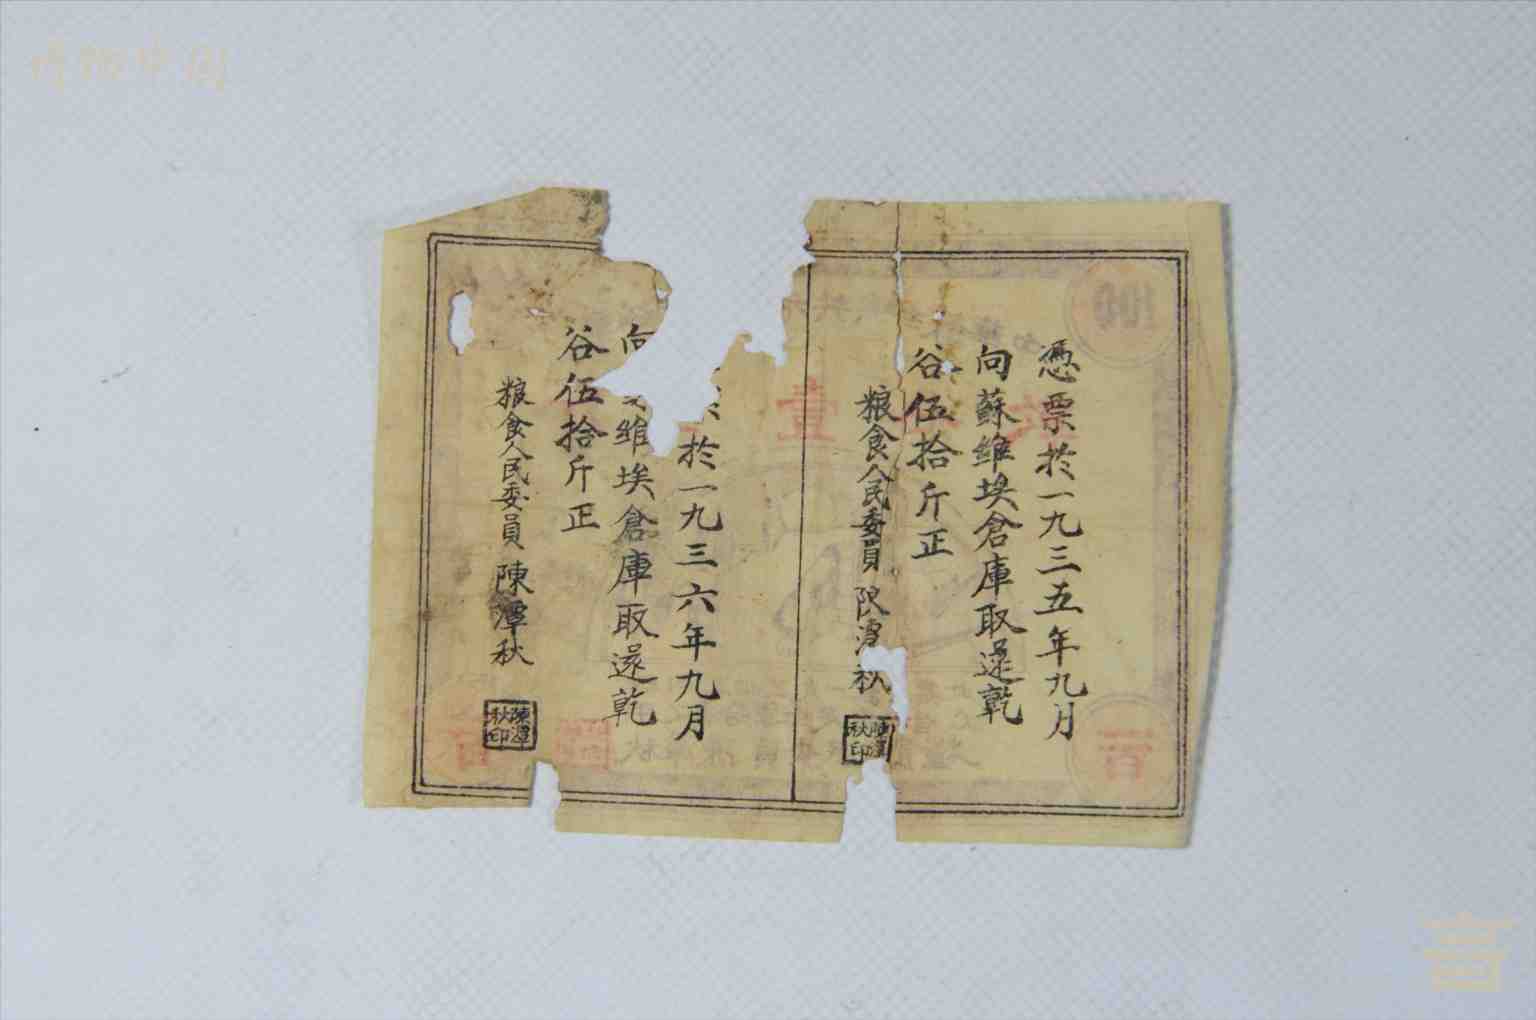 博物中国
憑票於一九三五年九月
向蘇維埃倉庫取還乾
谷伍拾斤正
粮食人民委員 陳潭秋
陳潭
秋印
於一九三六年九月
向 維埃倉庫取還乾
谷伍拾斤正
粮食人民委員 陳潭秋
陳潭
秋印
100
壹
百
百